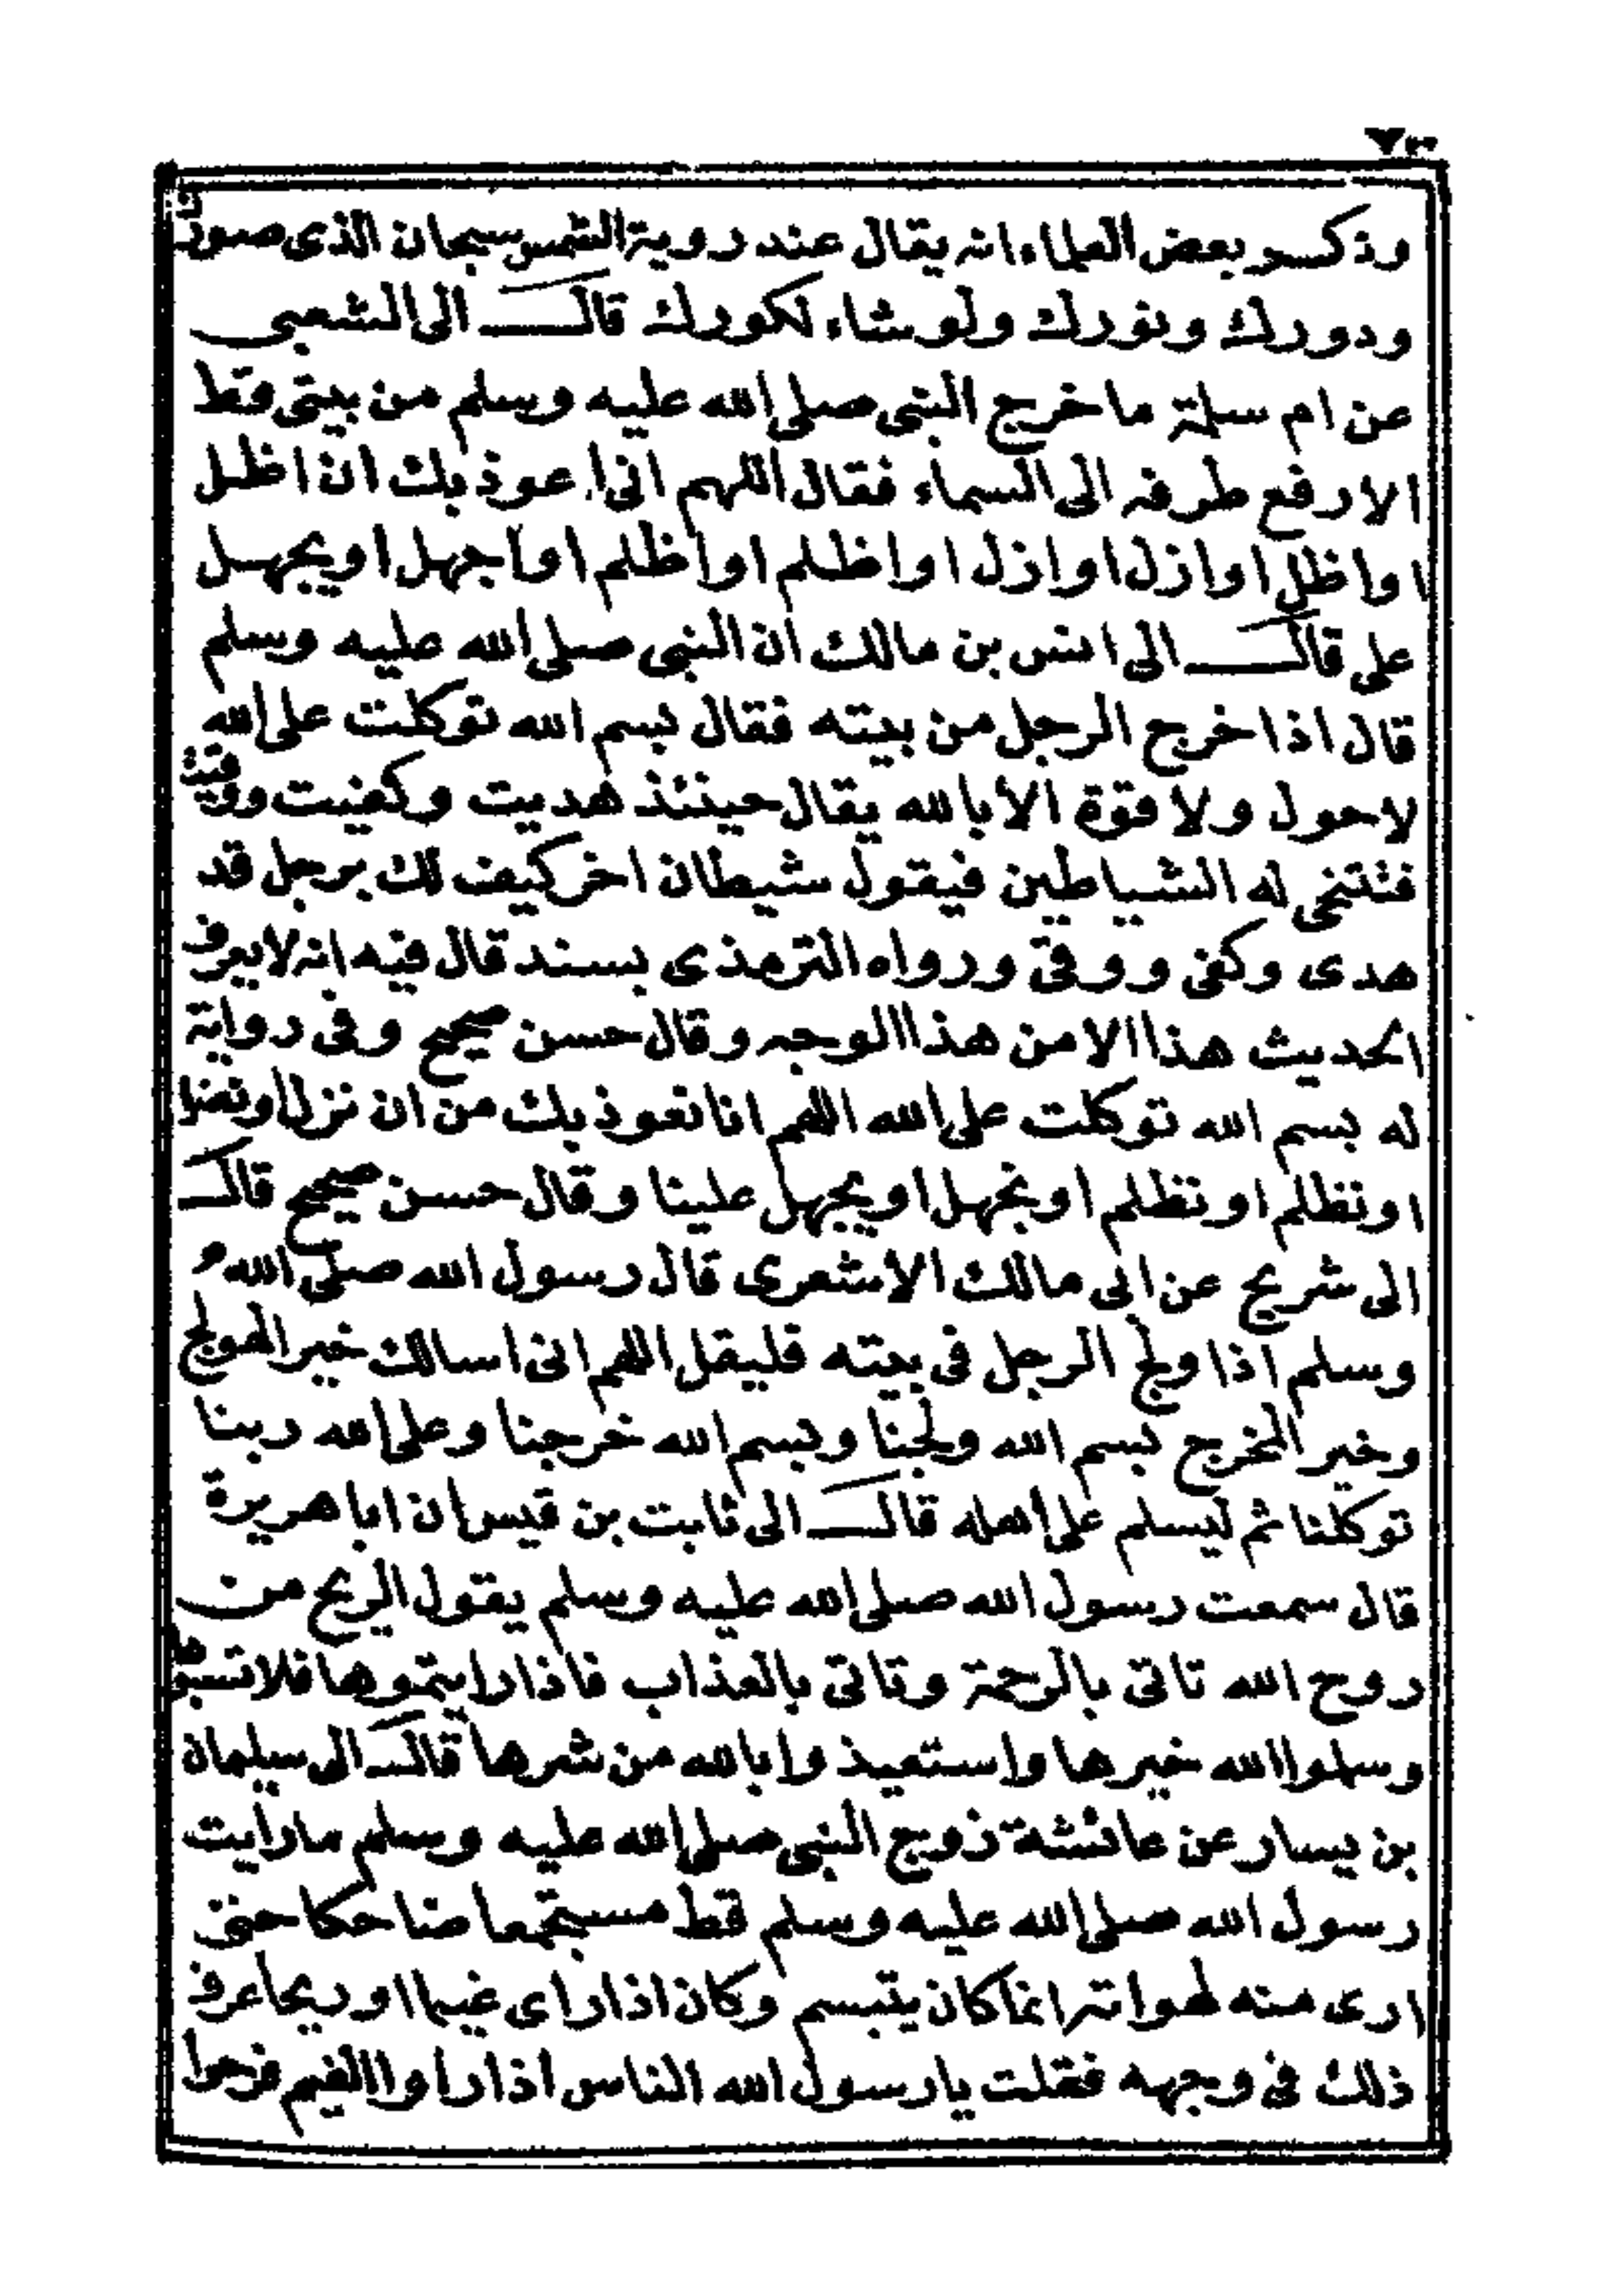 وذكر بعض العلماء انه يقال عند روية الشمس سبحان الذى صورك
ودورك ونورك ولو شاء لكورك قال الى الشعبى
عن ام سلمة ما خرج النبى صلى الله عليه وسلم من بيتى قط
الا رفع طرفه الى السماء فقال اللهم انى اعوذ بك ان اظل
او اظل او ازل او ازل او اظلم او اظلم او اجهل او يجهل
على قال الى انس بن مالك ان النبى صلى الله عليه وسلم
قال اذا خرج الرجل من بيته فقال بسم الله توكلت على الله
لا حول ولا قوة الا بالله يقال حينئذ هديت وكفيت ووقيت
فتتنحى له الشياطين فيقول شيطان اخر كيف لك برجل قد
هدى وكفى ووقى ورواه الترمذى بسند قال فيه انه لا يعرف
الحديث هذا الا من هذا الوجه وقال حسن صحيح وفى رواية
له بسم الله توكلت على الله اللهم انا نعوذ بك من ان نزل او نضل
او نظلم او نظلم او نجهل او يجهل علينا وقال حسن صحيح قال
الى شريح عن ابى مالك الاشعرى قال رسول الله صلى الله
وسلم اذا ولج الرجل فى بيته فليقل اللهم انى اسالك خير المولج
وخير المخرج بسم الله ولجنا وبسم الله خرجنا وعلى الله ربنا
توكلنا ثم ليسلم على اهله قال الى ثابت بن قيس ان ابا هريرة
قال سمعت رسول الله صلى الله عليه وسلم يقول الريح من
روح الله تاتى بالرحمة وتاتى بالعذاب فاذا رايتموها فلا تسبوها
وسلوا الله خيرها واستعيذوا بالله من شرها قال الى سليمان
بن يسار عن عائشة زوج النبى صلى الله عليه وسلم ما رايت
رسول الله صلى الله عليه وسلم قط مستجمعا ضاحكا حتى
ارى منه لهواته انما كان يتبسم وكان اذا راى غيما او ريحا عرف
ذلك فى وجهه فقلت يا رسول الله الناس اذا راوا الغيم فرحوا